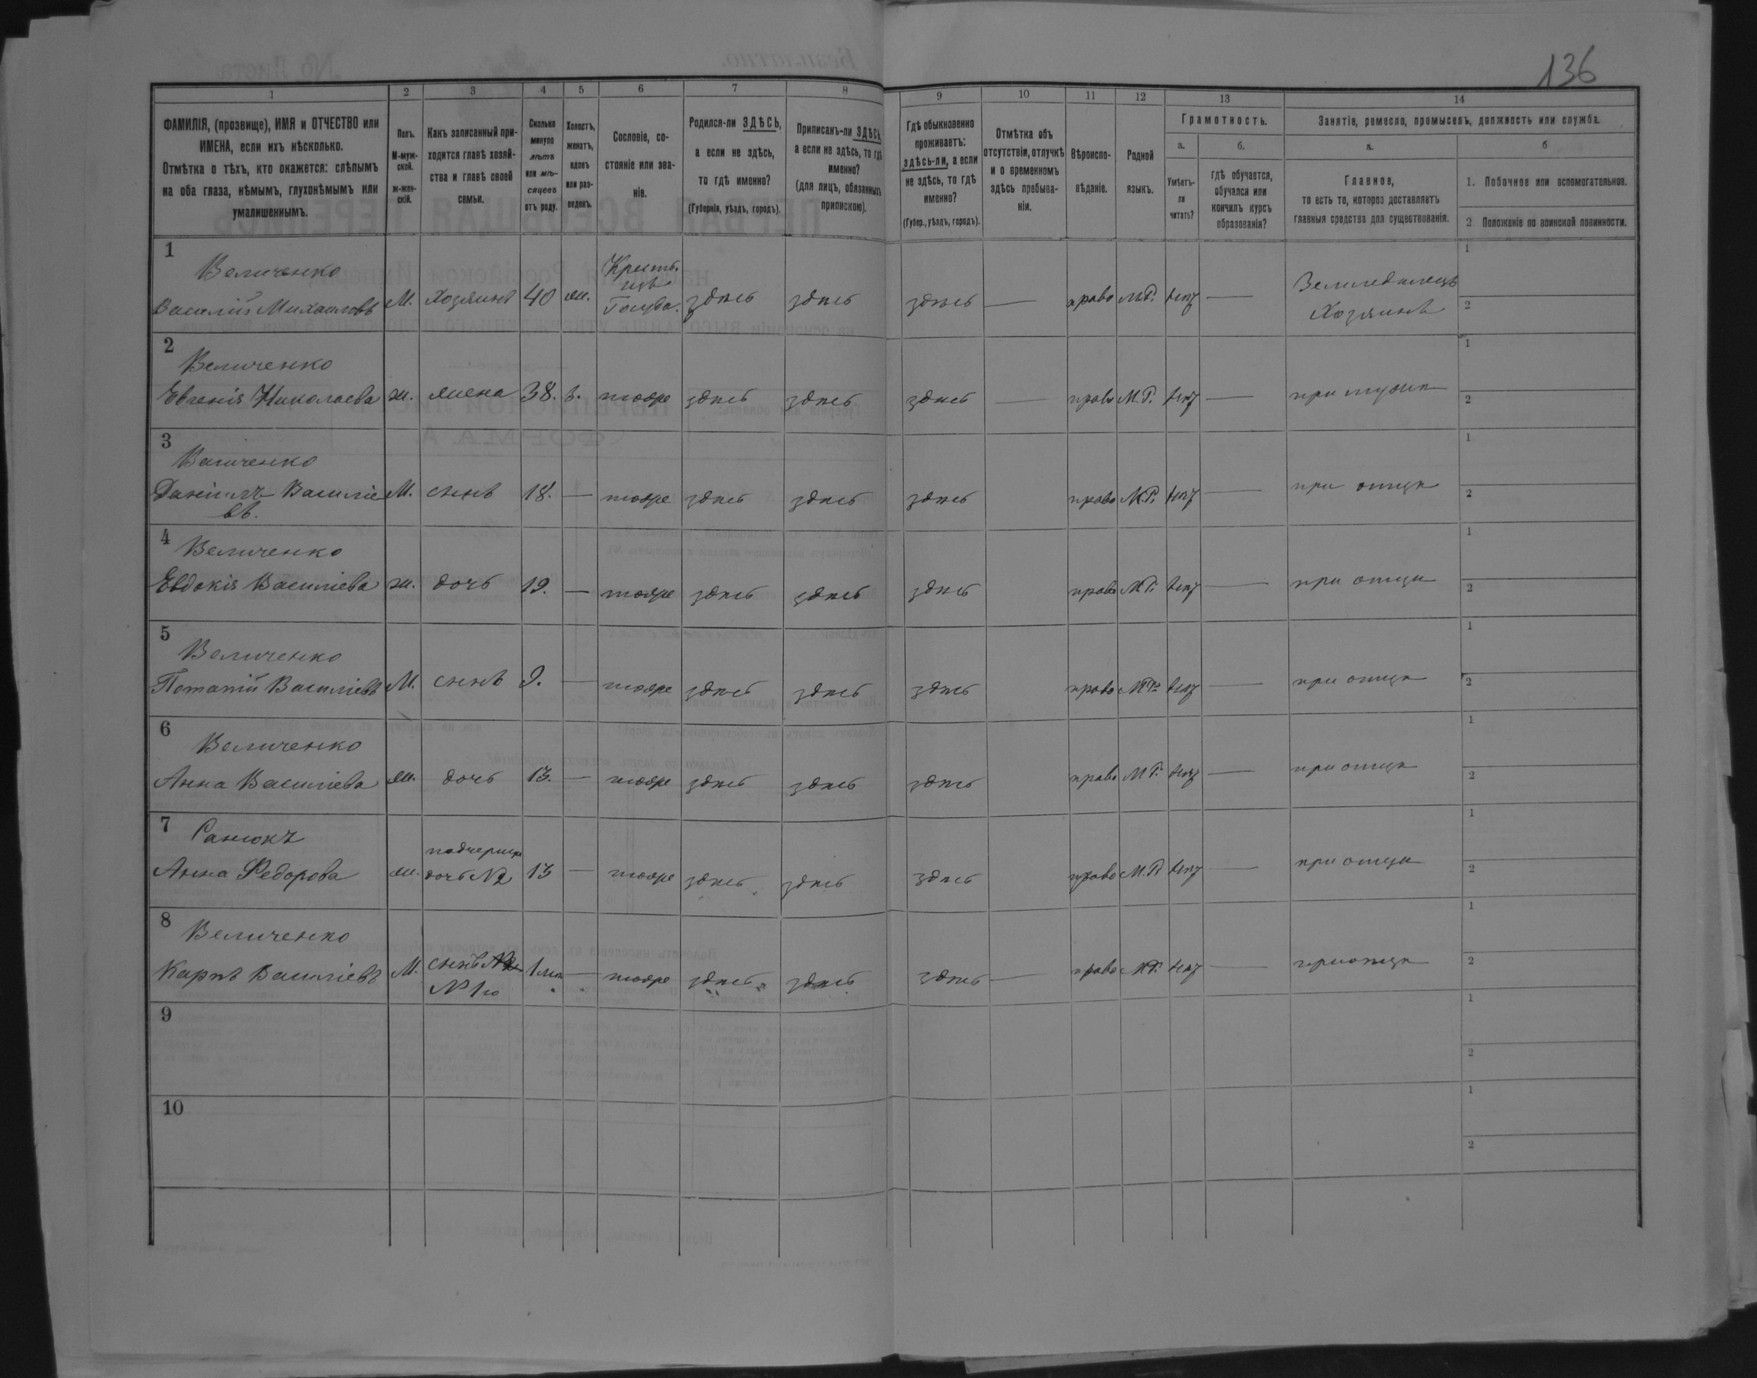 136
1 2 3 4 5 6 7 8 9 10 11 12 13 14
ФАМИЛІЯ, (прозвище), ИМЯ и ОТЧЕСТВО или
ИМЕНА, если ихъ нѣсколько.
Отмѣтка о тѣхъ, кто окажется: слѣпымъ
на оба глаза, нѣмымъ, глухонѣмымъ или
умалишеннымъ.
Полъ.
М-муж-
ской.
ж-жен-
скій.
Какъ записанный при-
ходится главѣ хозяй-
ства и главѣ своей
семьи.
Сколько
минуло
лѣтъ
или мѣ-
сяцевъ
отъ роду.
Холостъ,
женатъ,
вдовъ
или раз-
веденъ.
Сословіе, со-
стояніе или зва-
ніе.
Родился-ли ЗДѢСЬ,
а если не здѣсь,
то гдѣ именно?
(Губернія, уѣздъ, городъ).
Приписанъ-ли ЗДѢСЬ,
а если не здѣсь, то гдѣ
именно?
(для лицъ, обязанныхъ
припискою).
Гдѣ обыкновенно
проживаетъ:
здѣсь-ли, а если
не здѣсь, то гдѣ
именно?
(Губер., уѣздъ, городъ).
Отмѣтка объ
отсутствіи, отлучкѣ
и о временномъ
здѣсь пребыва-
ніи.
Вѣроиспо-
вѣданіе.
Родной
языкъ.
Грамотность.
а.
Умѣетъ-
ли
читать?
б.
гдѣ обучается,
обучался или
кончилъ курсъ
образованія?
Занятіе, ремесло, промыселъ, должность или служба.
а.
Главное,
то есть то, которое доставляетъ
главныя средства для существованія.
б
1. Побочное или вспомогательное.
2 Положеніе по воинской повинности.
1
Величенко
Василій Михаиловъ М. Хозяинъ 40 ж. здѣсь здѣсь здѣсь — право М.Р. —
Земледѣлецъ
Хозяинъ
1
2
2
Величенко
Евгенія Николаева ж. жена 38. з. тоже здѣсь здѣсь здѣсь — право М.Р. — при мужѣ
1
2
3
Величенко
Даніилъ Василіе М. сынъ 18. — тоже здѣсь здѣсь здѣсь право М.Р. — при отцѣ
въ.
1
2
4
Величенко
Евдокія Василіева ж. дочь — тоже здѣсь здѣсь здѣсь право М.Р. — при отцѣ
1
2
5
Величенко
Потапій Василіевъ М. сынъ 9. — тоже здѣсь здѣсь здѣсь право М.Р. — при отцѣ
1
2
6
Величенко
Анна Василіева ж. дочь 13. — тоже здѣсь здѣсь здѣсь право М.Р. — при отцѣ
1
2
7
Санюкъ
Анна Федорова ж. падчерица
дочь №2 13 — тоже здѣсь здѣсь здѣсь право М.Р. — при отцѣ
1
2
8
Величенко
Карпъ Василіевъ М. сынъ — тоже здѣсь здѣсь здѣсь — право М.Р. — при отцѣ
№ 1го
1
2
9
1
2
10
1
2